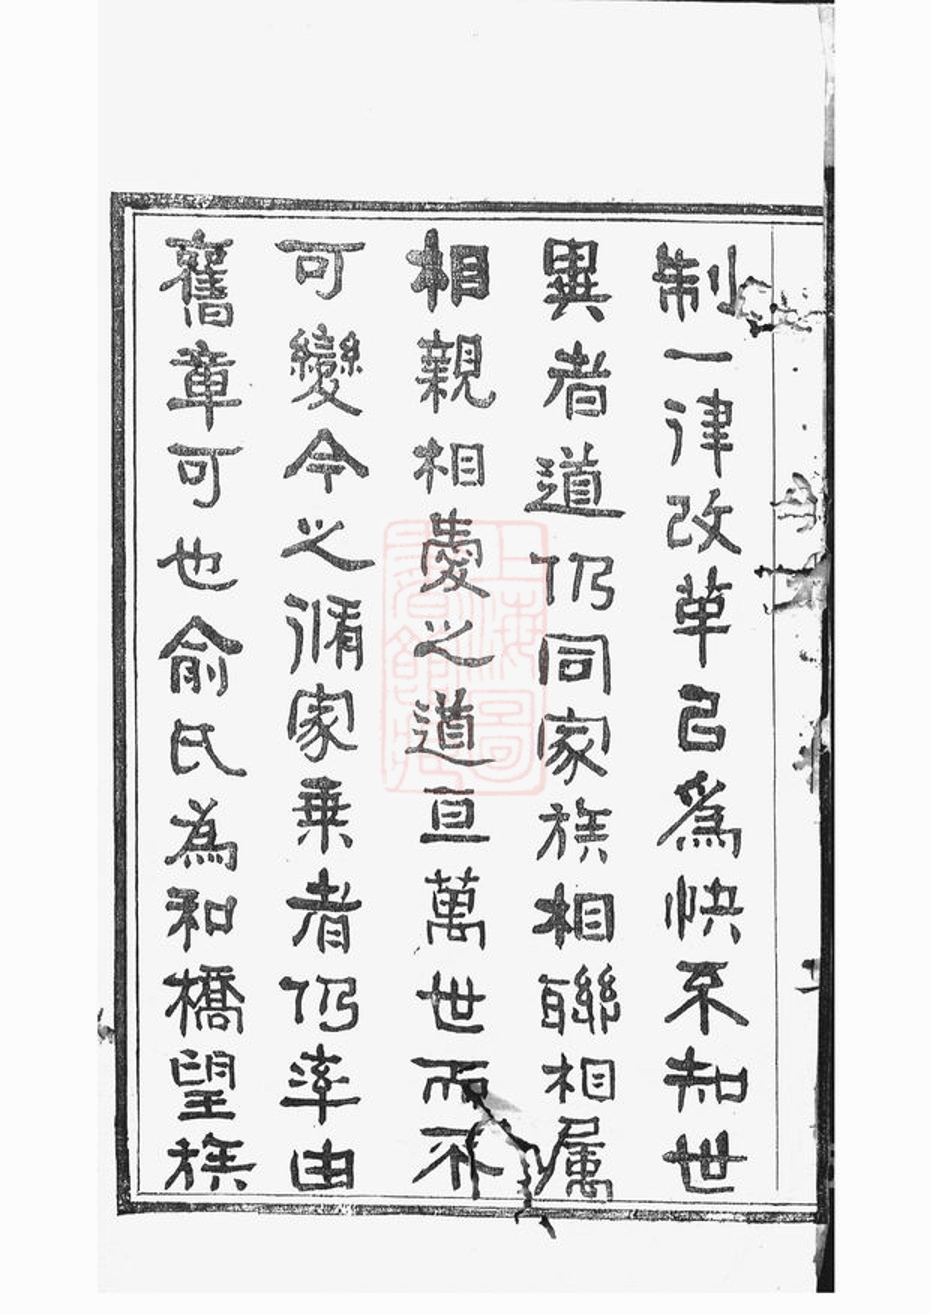 制一律改革已為快不知世
異者道仍同家族相聯相属
相親相愛之道亘萬世而不
可變今之脩家乗者仍率由
舊章可也俞氏為和橋望族